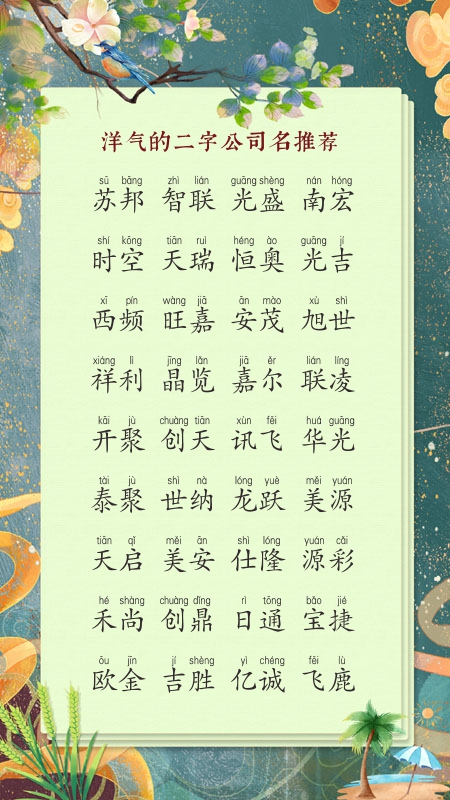 洋气的二字公司名推荐
sū bāng zhì lián guāng shèng nán hóng
苏邦 智联 光盛 南宏
shí kōng tiān ruì héng ào guāng jí
时空 天瑞 恒奥 光吉
xī pín wàng jiā ān mào xù shì
西频 旺嘉 安茂 旭世
xiáng lì jīng lǎn jiā ěr lián líng
祥利 晶览 嘉尔 联凌
kāi jù chuàng tiān xùn fēi huá guāng
开聚 创天 讯飞 华光
tài jù shì nà lóng yuè měi yuán
泰聚 世纳 龙跃 美源
tiān qǐ měi ān shì lóng yuán cǎi
天启 美安 仕隆 源彩
hé shàng chuàng dǐng rì tōng bǎo jié
禾尚 创鼎 日通 宝捷
ōu jīn jí shèng yì chéng fēi lù
欧金 吉胜 亿诚 飞鹿